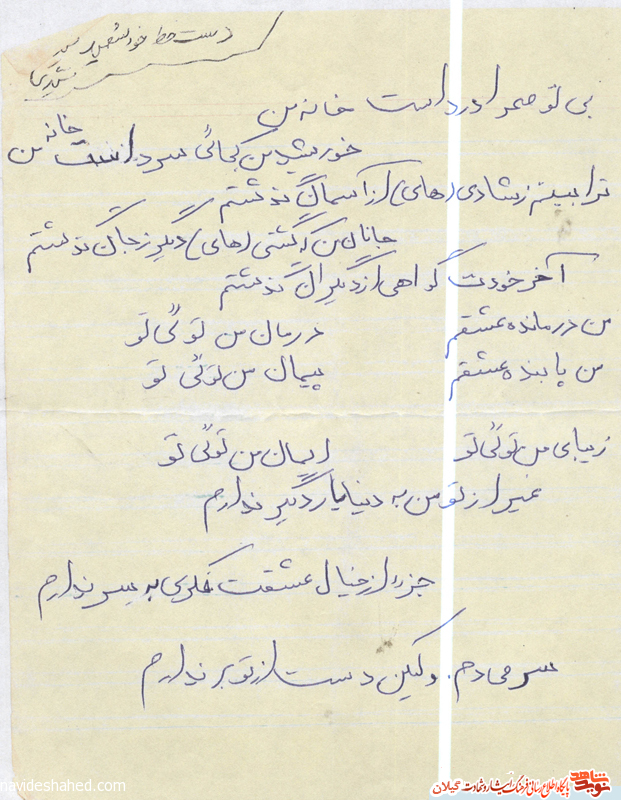 دست خط خود شهید
بی تو صحرا درد است خانه من
خورشید من کجائی سرد است خانه من
ترا بینم ز شادی (های) از آسمان گذشتم
جانان من که گشتی (های) دیگر ز جان گذشتم
آخر خودت گواهی از دیگران گذشتم
من درمانده عشقم درمان من توئی تو
من پابنده عشقم پیمان من توئی تو
زیبای من توئی تو ایمان من توئی تو
غیر از تو من به دنیا یار دگیر ندارم
جزء از خیال عشقت فکری به سر ندارم
سر می دم. ولیکن دست از تو بر ندارم
navideshahed.com
نوید شاهد
پایگاه اطلاع رسانی فرهنگ ایثار و شهادت گیلان